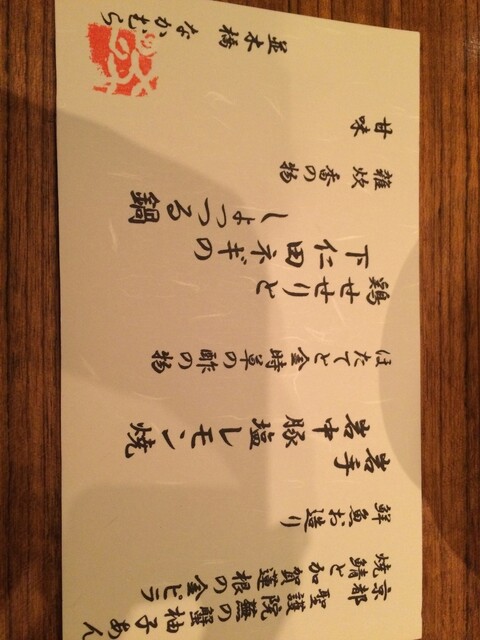 京都聖護院蕪の蟹柚子あん
焼鯖と加賀蓮根の金ピラ
鮮魚お造り
岩手
岩中豚塩レモン焼
ほたてと金時草の酢の物
鶏せせりと
下仁田ネギの
しょっつる鍋
雑炊 香の物
甘味
並木橋 なかむら